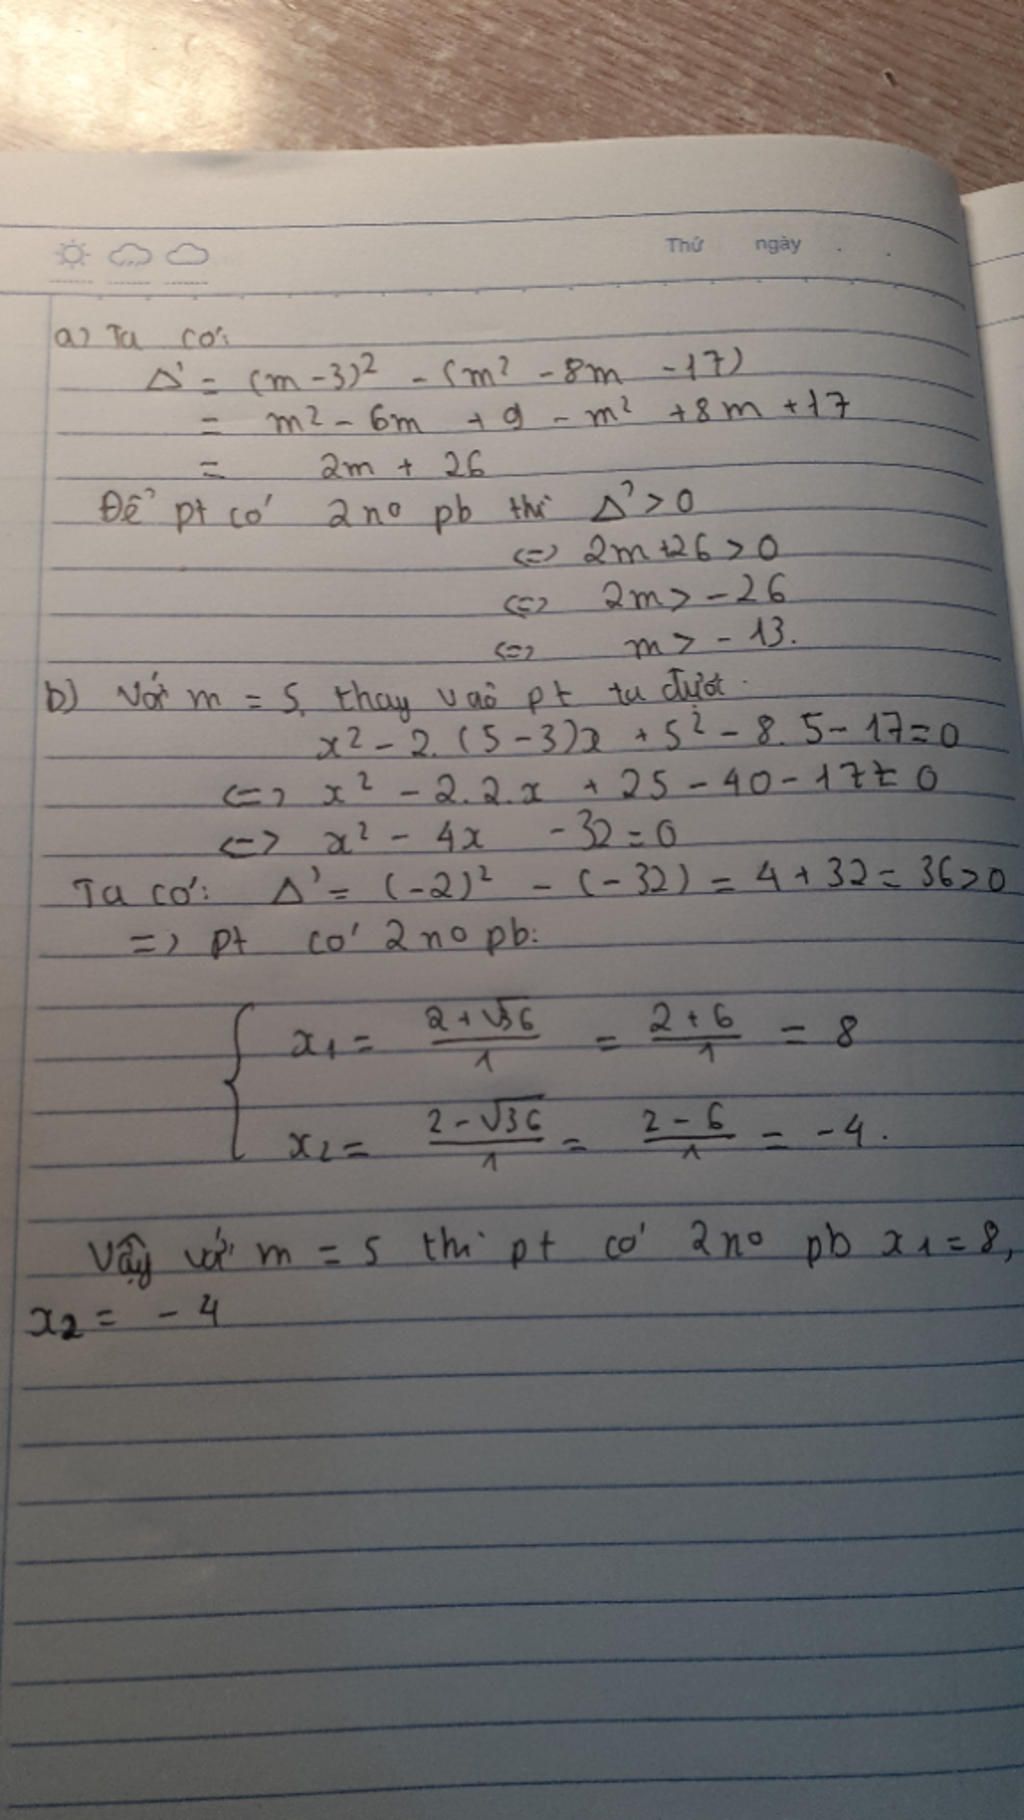 Thứ ngày . .
a) Ta có:
Δ' = (m - 3)² - (m² - 8m - 17)
= m² - 6m + 9 - m² + 8m + 17
= 2m + 26
Để pt có 2 no pb thì Δ' > 0
<=> 2m + 26 > 0
<=> 2m > - 26
<=> m > - 13.
b) Với m = 5, thay vào pt ta được.
x² - 2. (5 - 3)x + 5² - 8. 5 - 17 = 0
<=> x² - 2. 2. x + 25 - 40 - 17 = 0
<=> x² - 4x - 32 = 0
Ta có: Δ' = (-2)² - (-32) = 4 + 32 = 36 > 0
=> pt có 2 no pb:
x₁ = (2 + √36)/1 = (2 + 6)/1 = 8
x₂ = (2 - √36)/1 = (2 - 6)/1 = -4.
Vậy với m = 5 thì pt có 2 no pb x₁ = 8,
x₂ = - 4